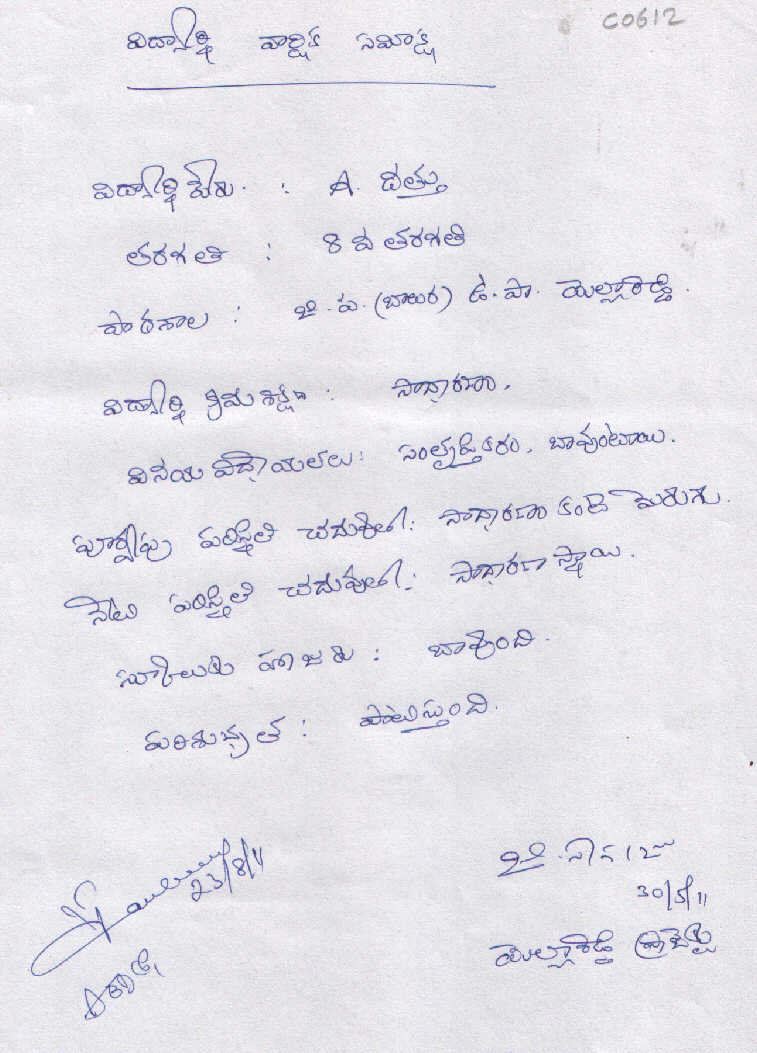 C0612
విద్యార్థి వార్షిక సమీక్ష
విద్యార్థి పేరు : A. దత్తు
తరగతి : 8 వ తరగతి
పాఠశాల : జి.ప. (బాలుర) ఉ.పా. యెల్లారెడ్డి.
విద్యార్థి క్రమశిక్షణ : సాధారణం.
వినయ విధేయతలు : సంతృప్తికరం, బావుంటాయి.
పూర్వపు పరిస్థితి చదువులో : సాధారణం కంటె మెరుగు.
నేటి పరిస్థితి చదువులో : సాధారణ స్థాయి.
స్కూలుకు హాజరు : బావుంది.
పరిశుభ్రత : పాటిస్తుంది.
23/8/11
30/5/11
యెల్లారెడ్డి ప్రాజెక్టు